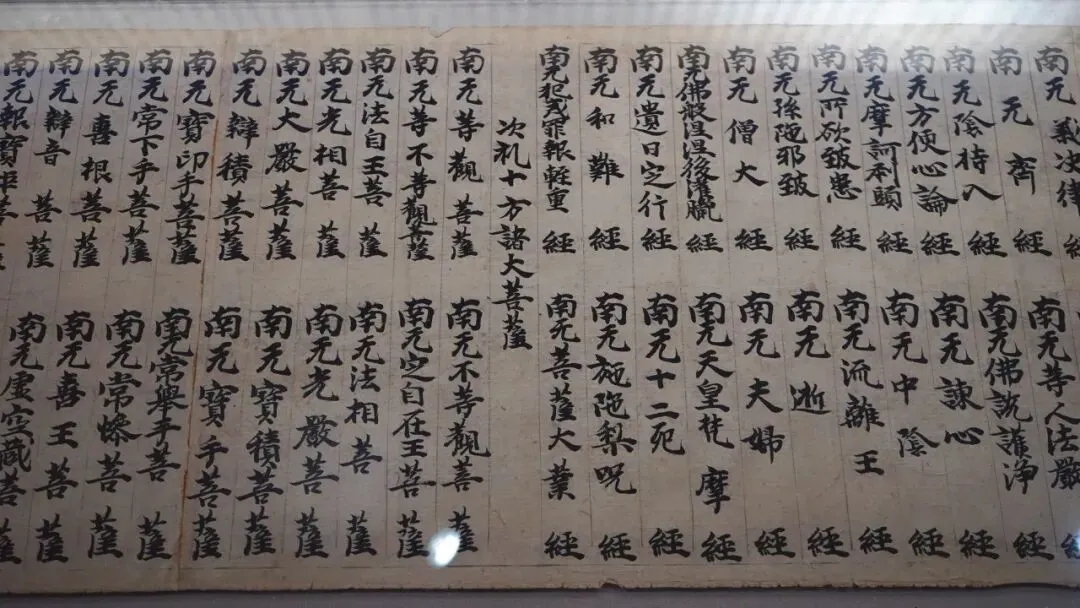 南无義决律經
南无等人法嚴經
南无齊經
南无佛說護淨經
南无陰持入經
南无諫心經
南无方便心論經
南无中陰經
南无摩訶剌頭經
南无流離王經
南无所欲致患經
南无逝經
南无孫陁邪致經
南无夫婦經
南无僧大經
南无天皇梵摩經
南无佛般泥洹後灌臘經
南无十二死經
南无遺日定行經
南无施陁梨呪經
南无和難經
南无菩薩大業經
南无犯戒罪報輕重經
次礼十方諸大菩薩
南无等觀菩薩
南无不等觀菩薩
南无等不等觀菩薩
南无定自在王菩薩
南无法自王菩薩
南无法相菩薩
南无光相菩薩
南无光嚴菩薩
南无大嚴菩薩
南无寶積菩薩
南无辯積菩薩
南无寶手菩薩
南无寶印手菩薩
南无常舉手菩薩
南无常下手菩薩
南无常慘菩薩
南无喜根菩薩
南无喜王菩薩
南无辯音菩薩
南无虛空藏菩薩
南无報寶炬菩薩